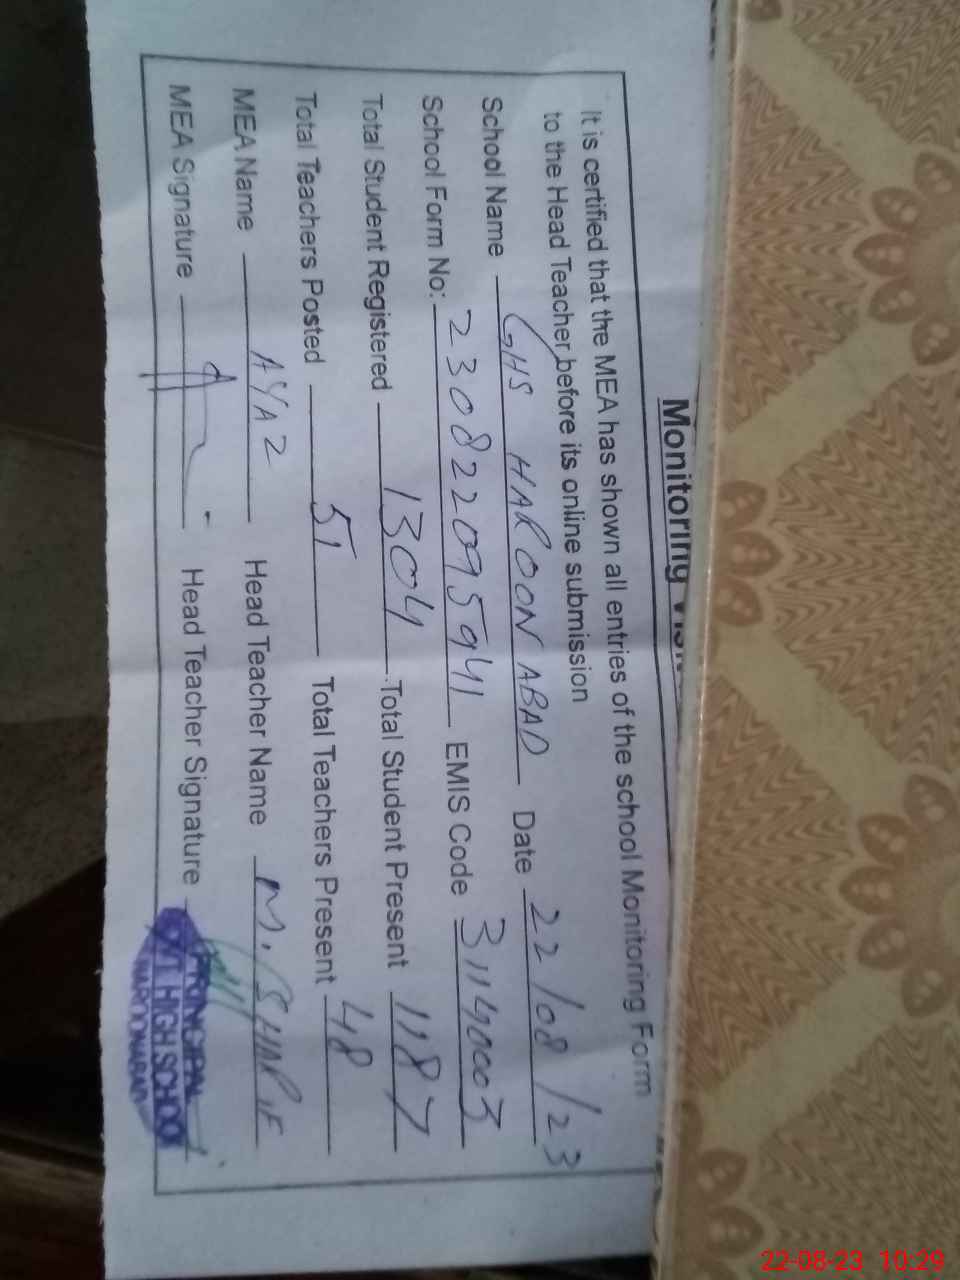 Monitoring
It is certified that the MEA has shown all entries of the school Monitoring Form
to the Head Teacher before its online submission
School Name GHS HAROONABAD Date 22/08/23
School Form No: 2308220959411 EMIS Code 31140003
Total Student Registered 1304 Total Student Present 1187
Total Teachers Posted 51 Total Teachers Present 48
MEA Name AYAZ Head Teacher Name M. SHARIF
MEA Signature Head Teacher Signature
PRINCIPAL
GOVT HIGH SCHOOL
HAROONABAD
22-08-23 10:29